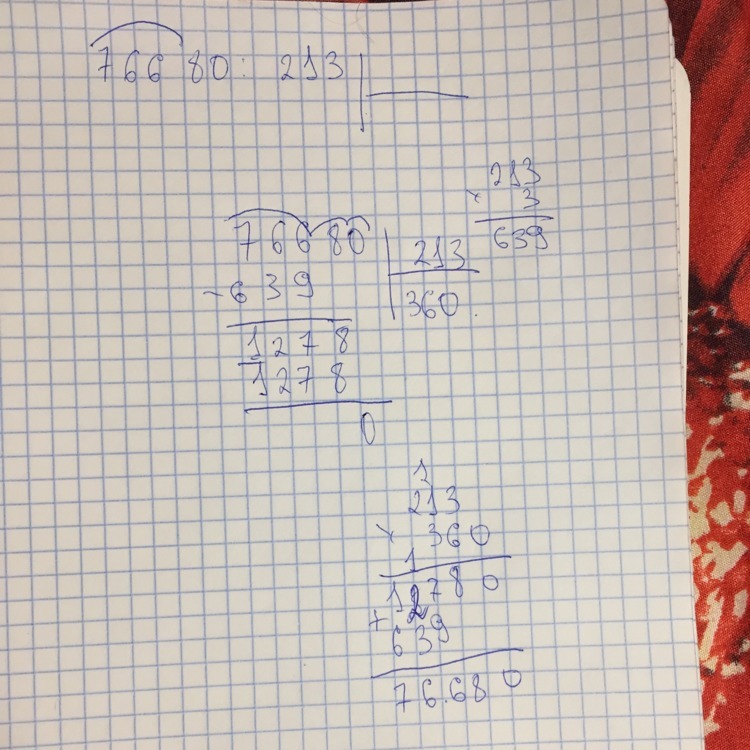 76680: 213
213
× 3
639
76680 213
- 639 360.
1278
- 1278
0
1
213
× 360
1
12780
+ 639
76.680